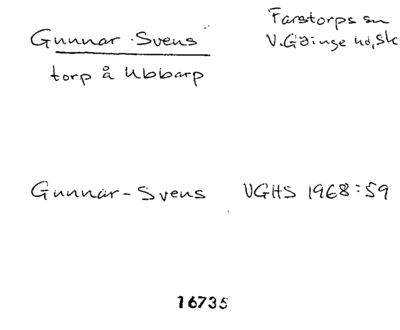 Gunnar-Svens
torp å Ubbarp
Farstorps sn
V.Göinge hd, Sk
Gunnar-Svens VGHS 1968:59
16735